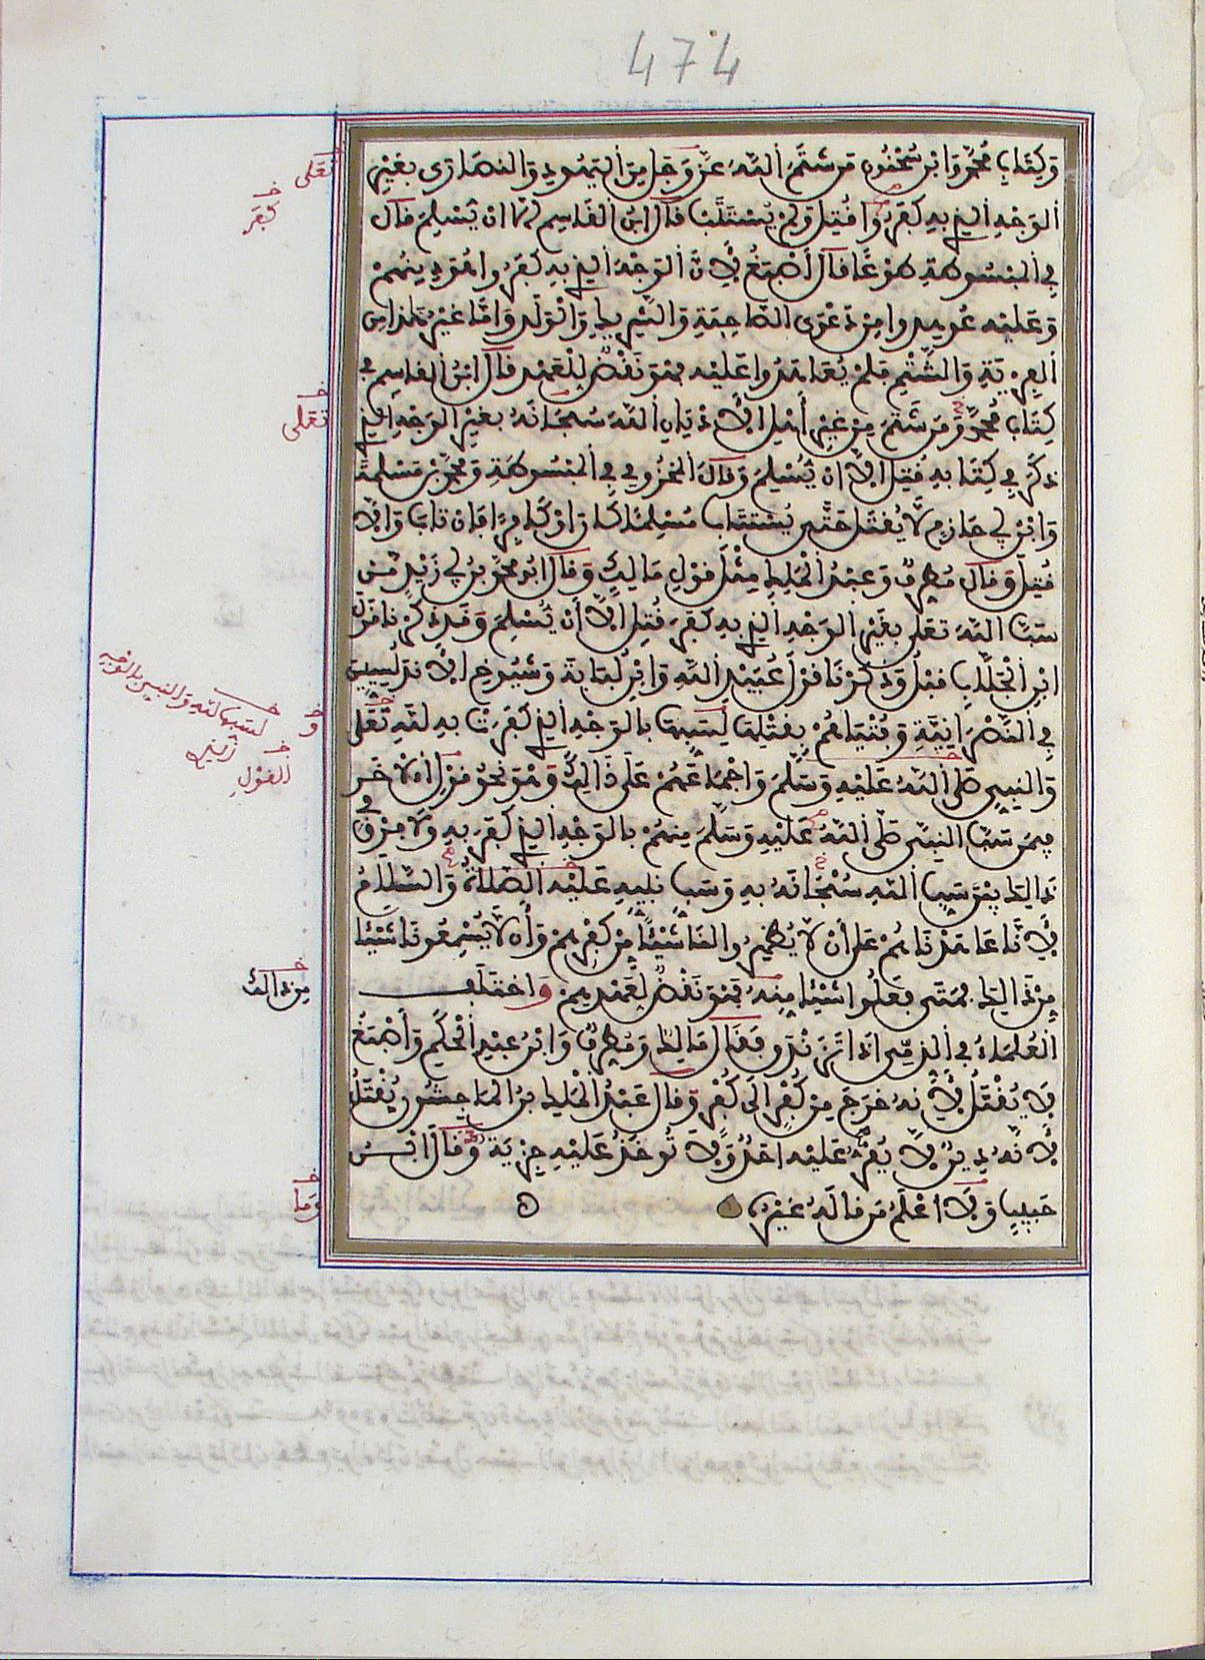 474
وَكِتَابِ مُحَمَّدٍ وَابْنِ سُحْنُونٍ مَن شَتَمَ اللَّهَ عَزَّ وَجَلَّ مِنَ الْيَهُودِ وَالنَّصَارَى بِغَيْرِ
الْوَجْهِ الَّذِي بِهِ كَفَرُوا قُتِلَ وَلَمْ يُسْتَتَبْ قَالَ ابْنُ الْقَاسِمِ إِلَّا أَنْ يُسْلِمَ قَالَ
فِي الْمَبْسُوطَةِ طَوْعًا قَالَ أَصْبَغُ لِأَنَّ الْوَجْهَ الَّذِي بِهِ كَفَرُوا هُوَ دِينُهُمْ
وَعَلَيْهِ عُوهِدُوا مِنْ دَعْوَى الصَّاحِبَةِ وَالشَّرِيكِ وَالْوَلَدِ وَأَمَّا غَيْرُ هَذَا مِنَ
الْفِرْيَةِ وَالشَّتْمِ فَلَمْ يُعَاهَدُوا عَلَيْهِ فَهُوَ نَقْضٌ لِلْعَهْدِ قَالَ ابْنُ الْقَاسِمِ فِي
كِتَابِ مُحَمَّدٍ وَمَنْ شَتَمَ مِنْ غَيْرِ أَهْلِ الْأَدْيَانِ اللَّهَ سُبْحَانَهُ بِغَيْرِ الْوَجْهِ الَّذِي
ذَكَرَ فِي كِتَابِهِ قُتِلَ إِلَّا أَنْ يُسْلِمَ وَقَالَ الْمَخْزُومِي فِي الْمَبْسُوطَةِ وَمُحَمَّدُ بْنُ مَسْلَمَةَ
وَابْنُ أَبِي حَازِمٍ لَا يُقْتَلُ حَتَّى يُسْتَتَابَ مُسْلِمًا كَانَ أَوْ كَافِرًا فَإِنْ تَابَ وَإِلَّا
قُتِلَ وَقَالَ مُطَرِّفٌ وَعَبْدُ الْمَلِكِ مِثْلَ قَوْلِ مَالِكٍ وَقَالَ أَبُو مُحَمَّدِ بْنُ أَبِي زَيْدٍ مَنْ
سَبَّ اللَّهَ تَعَلَى بِغَيْرِ الْوَجْهِ الَّذِي بِهِ كَفَرَ قُتِلَ إِلَّا أَنْ يُسْلِمَ وَقَدْ ذَكَرْنَا قَوْلَ
ابْنِ الْجَلَّابِ قَبْلُ وَذَكَرْنَا قَوْلَ عُبَيْدِ اللَّهِ وَابْنِ لُبَابَةَ وَشُيُوخِ الْأَنْدَلُسِيِّينَ
فِي النَّصْرَانِيَّةِ وَفُتْيَاهُمْ بِقَتْلِهَا لِسَبِّهَا بِالْوَجْهِ الَّذِي كَفَرَتْ بِهِ لِلَّهِ تَعَلَى
وَالنَّبِيِّ صَلَّى اللَّهُ عَلَيْهِ وَسَلَّمَ وَإِجْمَاعَهُمْ عَلَى ذَلِكَ وَهُوَ نَحْوُ قَوْلِ الْآخَرِ
فِيمَنْ سَبَّ النَّبِيَّ صَلَّى اللَّهُ عَلَيْهِ وَسَلَّمَ مِنْهُمْ بِالْوَجْهِ الَّذِي كَفَرَ بِهِ وَلَا فَرْقَ فِي
ذَالِكَ بَيْنَ سَبِّ اللَّهِ سُبْحَانَهُ بِهِ وَسَبِّ نَبِيِّهِ عَلَيْهِ الصَّلَاةُ وَالسَّلَامُ
لِأَنَّا عَاهَدْنَاهُمْ عَلَى أَنْ لَا يُظْهِرُوا لَنَا شَيْئًا مِنْ كُفْرِهِمْ وَأَنْ لَا يُسْمِعُونَا شَيْئًا
مِنْ ذَالِكَ فَمَتَى فَعَلُوا شَيْئًا مِنْهُ فَهُوَ نَقْضٌ لِعَهْدِهِمْ وَاخْتَلَفَ
الْعُلَمَاءُ فِي الذِّمِّيِّ إِذَا تَزَنْدَقَ فَقَالَ مَالِكٌ وَمُطَرِّفٌ وَابْنُ عَبْدِ الْحَكَمِ وَأَصْبَغُ
لَا يُقْتَلُ لِأَنَّهُ خَرَجَ مِنْ كُفْرٍ إِلَى كُفْرٍ وَقَالَ عَبْدُ الْمَلِكِ بْنُ الْمَاجِشُونِ يُقْتَلُ
لِأَنَّهُ دِينٌ لَا يُقَرُّ عَلَيْهِ أَحَدٌ وَلَا تُوخَذُ عَلَيْهِ جِزْيَةٌ وَقَالَ ابْنُ
حَبِيبٍ وَلَا أَعْلَمُ مَنْ قَالَهُ غَيْرَهُ ه
تَعَلَى
كَفَرَ
تعلى
لسبها لله والنبي بالوجه
القَوْلِ
مِنْ ذَالِكَ
وَمَا